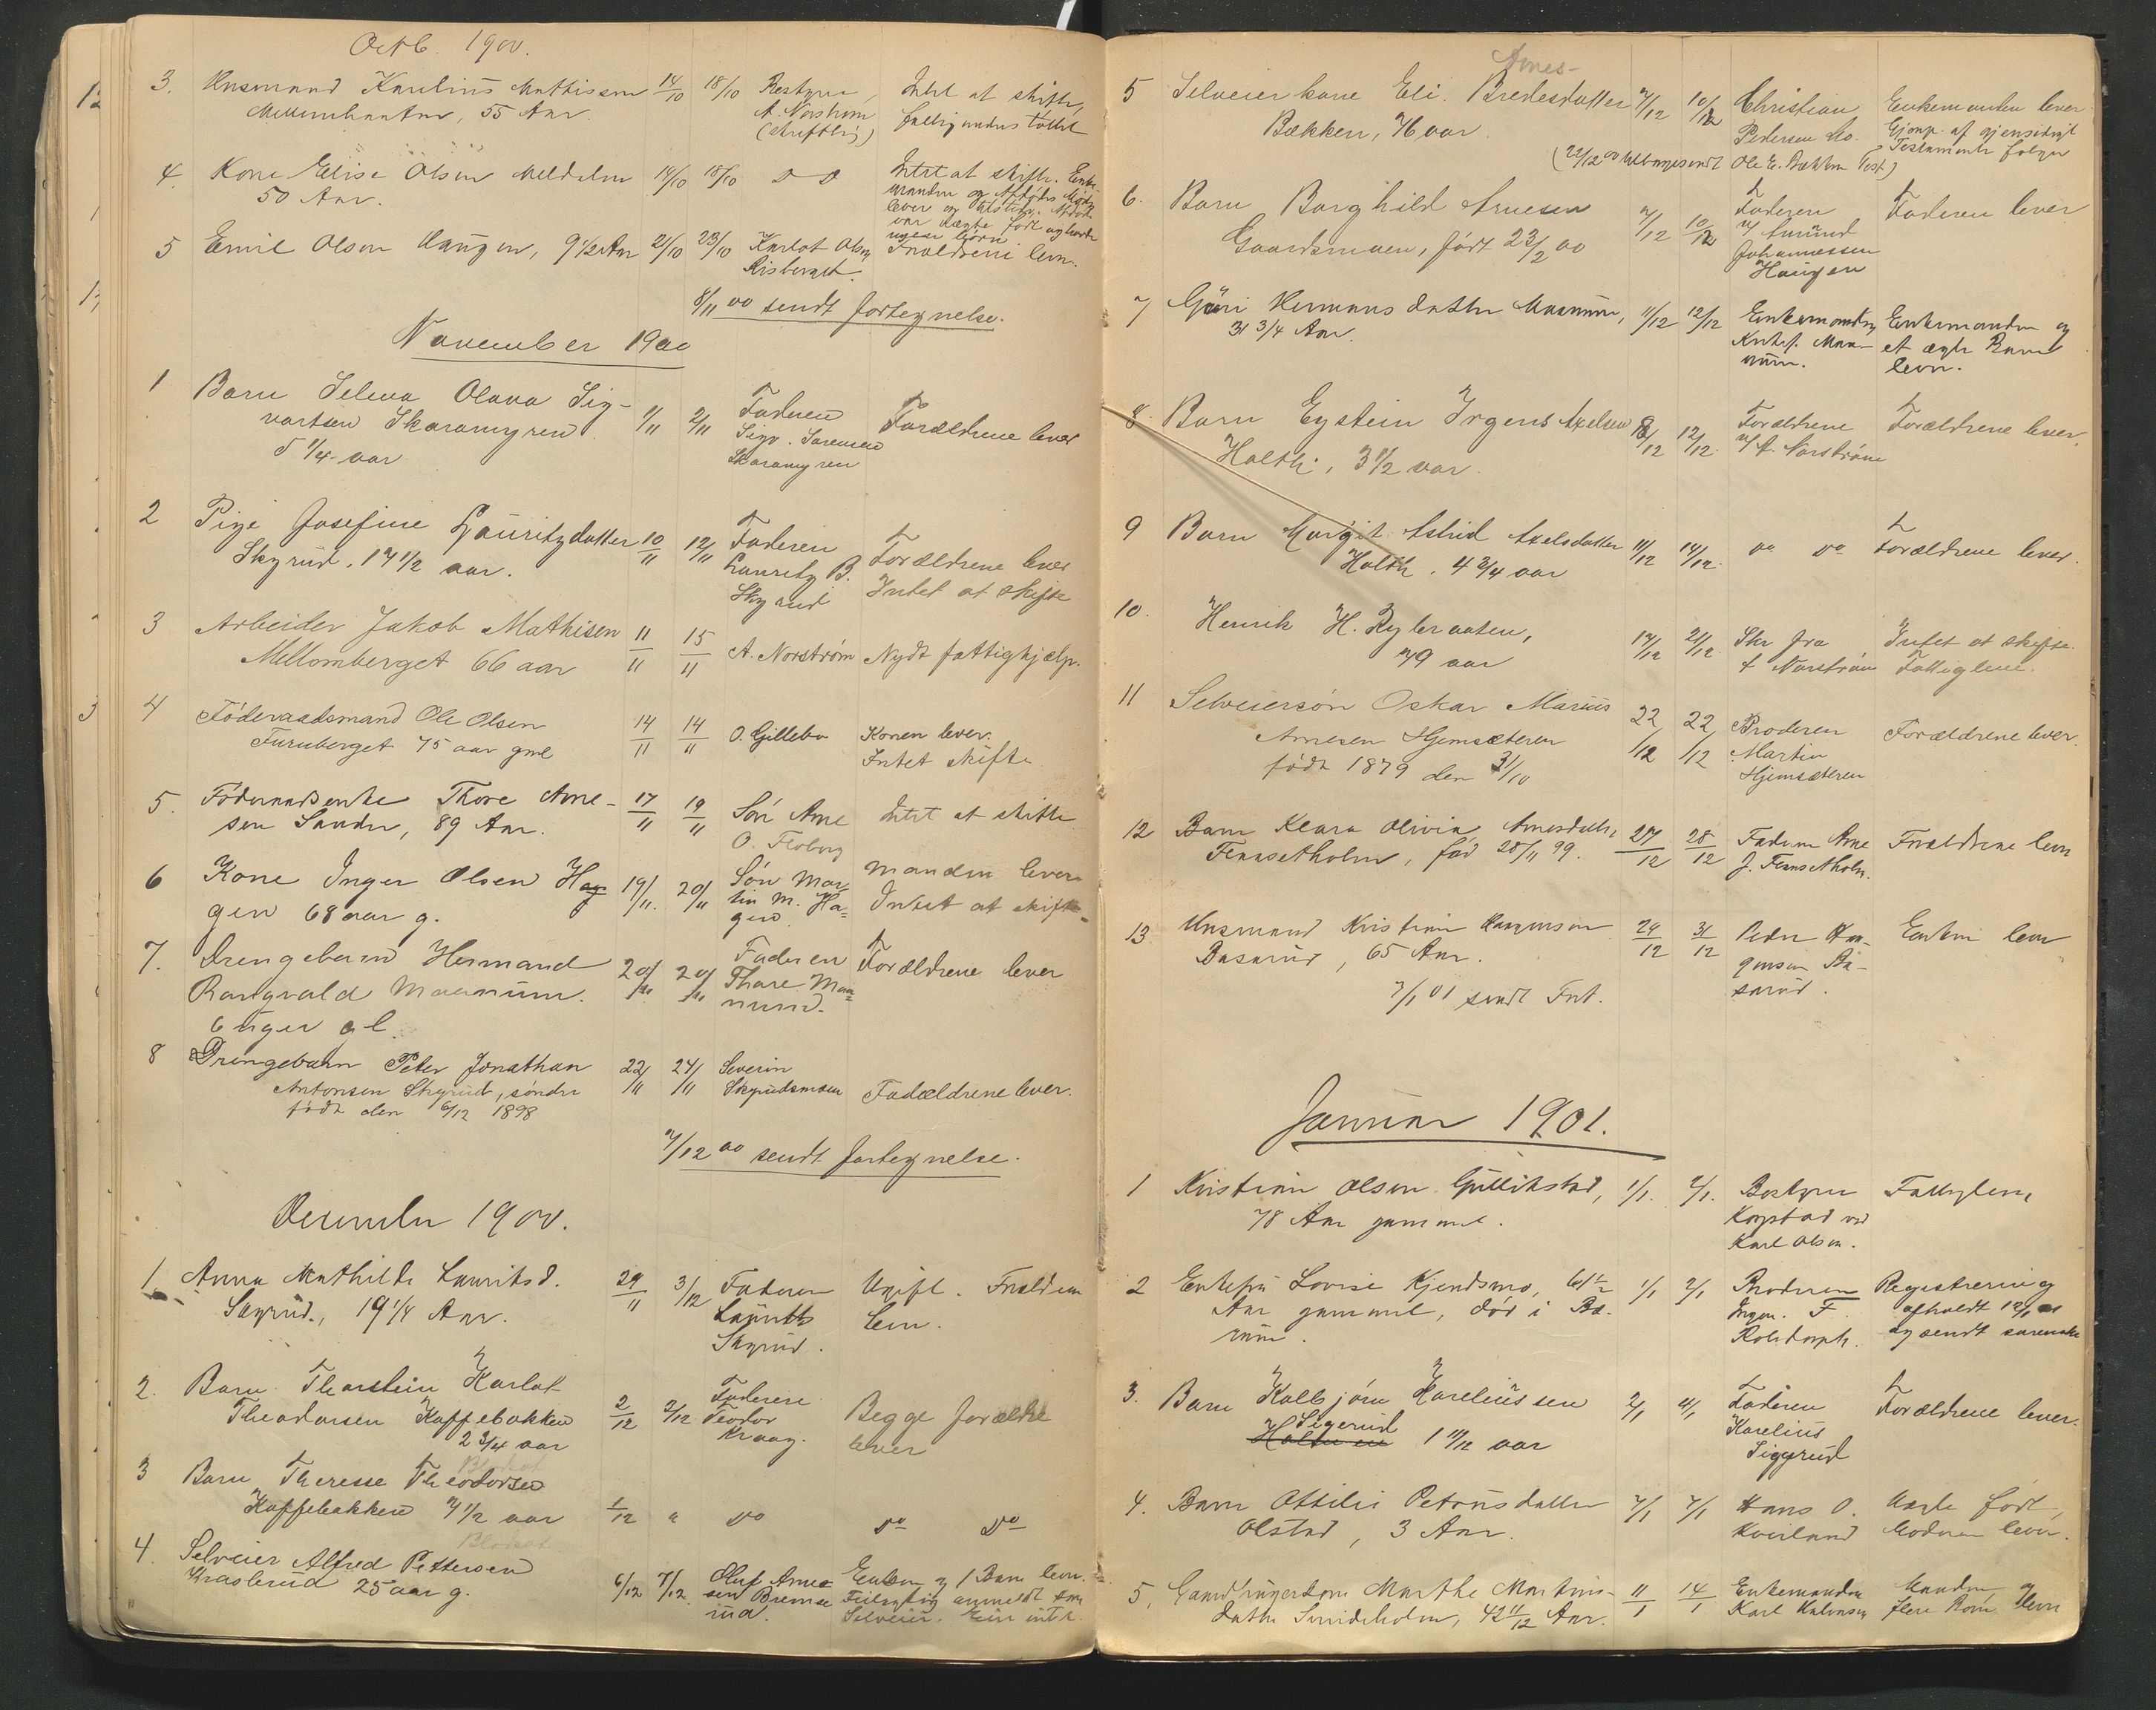 Octb. 1900.
3. Husmand Karelius Mathisen 14/10 18/10
55 Aar.
A. Norstrøm
(skriftlig)
Intet at skifte,
4. Kone Elise Olsen 14/10 18/10 D D
50 Aar.
Intet at skifte.
5 Emil Olsen Haugen, 9 1/2 Aar 21/10 23/10 Karlot Olsen
Risberget
Forældrene lever.
8/11 00 sendt fortegnelse.
November 1900
1 Barn Selma Olava Sig-
vartsen Skaramyren
5 1/4 aar
1/11 2/11 Faderen
Sigv. Sørensen
Skaramyren
Forældrene lever
2 Pige Josefine Lauritzdatter
Skyrud. 14 1/2 aar.
10/11 12/11 Faderen
Lauritz B.
Skyrud
Forældrene lever
Intet at skifte
3 Arbeider Jakob Mathisen
Mellomberget 66 aar
11/11 15/11 A. Norstrøm Nydt fattighjælp.
4 Föderaadsmand Ole Olsen
Furuberget 75 aar gml
14/11 14/11 O. Gillebo Konen lever.
Intet skifte
5. Föderaadsenke Thore Arne-
sen Sander, 89 Aar.
17/11 19/11 Søn Arne
O. Floberg
Intet at skifte
6 Kone Inger Olsen Ha-
gen 68 aar g.
19/11. 20/11 Søn Mar-
tin M. Ha-
gen
Manden lever
Intet at skifte
7. Drengebarn Hermand
Rangvald Maanum.
6 uger gl.
20/11 20/11 Faderen
Thore Maa-
num.
Forældrene lever
8 Drengebarn Peter Jonathan
Antonsen Skyrud, söndre
født den 6/12 1898
22/11 24/11 Severin
Skyrudsmoen Forældrene lever.
7/12 00 sendt fortegnelse.
December 1900.
1 Anna Mathilde Lauritsd.
Skyrud, 19 1/4 Aar.
29/11 3/12 Faderen
Laurits
Skyrud.
Ugift. Forældrene
lever.
2. Barn Thorstein Karlot
Theodorsen Kaffebakken
2 3/4 aar
2/12 3/12 Faderen
Teodor
Kraag.
Begge forældre
lever
3 Barn Theresse Theodorsen
Kaffebakken 4 1/2 aar
1/12 " Do Do Do
4. Selveier Alfred Pettersen
25 aar g.
6/12 7/12. Oluf Arne-
sen
Enken og 1 Barn lever.
Arnes-
5 Selveierkone Eli Bredesdatter
Bækken, 76 aar.
7/12 10/12 Christian
Pedersen
Enkemanden lever
Gjenp. af gjensidigt
Testamente følger
(22/12 00 tilbagesendt Ole E. Bækken Test)
6. Barn Borghild Arnesen
Gaardsmoen, født 23/2 00
7/12 10/12 Faderen
v/ Amund
Johannessen
Haugen
Faderen lever
7 Guri Hermansdatter Maanum,
31 3/4 Aar.
11/12 12/12 Enkemanden
Kristof. Maa-
num.
Enkemanden og
et ægte Barn
lever.
8. Barn Eystein Irgens Axelsen
Holth, 3 1/2 aar.
12/12. Forældrene
v/ A. Norstrøm
Forældrene lever.
9 Barn Margit Astrid Axelsdatter
Holth. 4 3/4 aar
11/12 14/12. Do Do Forældrene lever.
10. Henrik H. Rybraaten,
79 aar
21/12 Skr fra
A Norstrøm
Intet at skifte.
Fattiglem.
11 Selveiersøn Oskar Marius
Arnesen Hjemsæteren
født 1879 den 31/10
22/12 22/12 Broderen
Martin
Hjemsæteren
Forældrene lever.
12 Barn Klara Olivia Arnesdatter
Fennsetholm, fød 28/11 99.
27/12 28/12 Faderen Arne
J. Fennsetholm.
Forældrene lever
13 Husmand Kristian Haagensen
Basarud, 65 Aar.
29/12 31/12 Peder Haa-
gensen Ba-
sarud.
Enken lever
7/1 01 sendt Fort.
Januar 1901.
1 Kristian Olsen Gullikstad,
78 Aar gammel.
1/1. 2/1. Bestyrer
Kopstad ved
Karl Olsen.
Fattiglem
2 Enkefru Lovise Kjendsmo, 61 1/2
Aar gammel, død i Bæ-
rum.
1/1 2/1 Broderen
Ingen. F.
Registrering
afholdt 12/1 01
og sendt
3. Barn Kolbjørn Kareliussen
Sigerud
1 11/12 aar
2/1 4/1 Faderen
Karelius
Siggerud
Forældrene lever.
4. Barn Ottilie Petrusdatter
Olstad, 3 Aar.
7/1 7/1 Hans O.
Kveiland
Uægte født,
Moderen lever.
5. Gaardbrugerkone Marthe Martins-
datter 42 11/12 Aar.
11/1 14/1 Enkemanden
Karl Halvorsen
Manden og
flere Børn lever